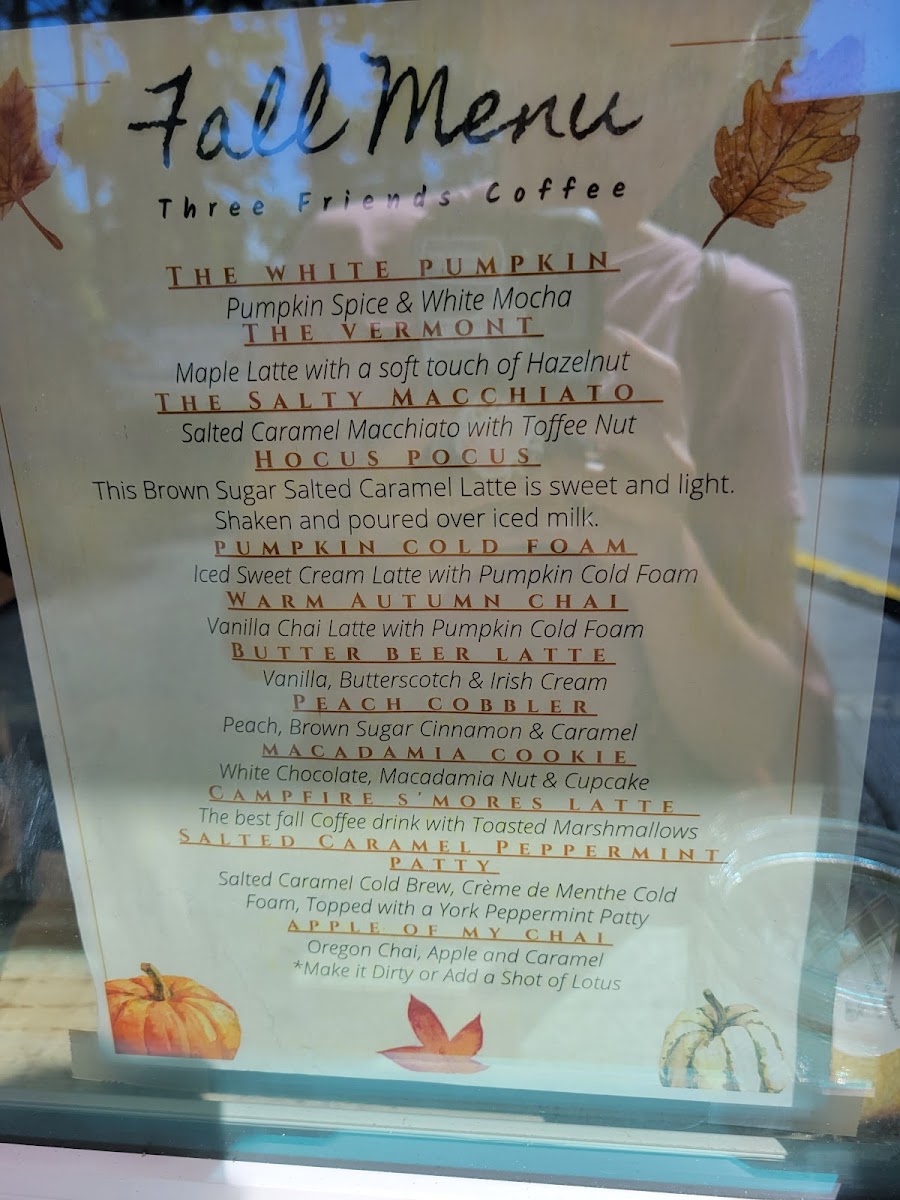 Fall Menu
Three Friends Coffee
THE WHITE PUMPKIN
Pumpkin Spice & White Mocha
THE VERMONT
Maple Latte with a soft touch of Hazelnut
THE SALTY MACCHIATO
Salted Caramel Macchiato with Toffee Nut
HOCUS POCUS
This Brown Sugar Salted Caramel Latte is sweet and light.
Shaken and poured over iced milk.
PUMPKIN COLD FOAM
Iced Sweet Cream Latte with Pumpkin Cold Foam
WARM AUTUMN CHAI
Vanilla Chai Latte with Pumpkin Cold Foam
BUTTER BEER LATTE
Vanilla, Butterscotch & Irish Cream
PEACH COBBLER
Peach, Brown Sugar Cinnamon & Caramel
MACADAMIA COOKIE
White Chocolate, Macadamia Nut & Cupcake
CAMPFIRE S'MORES LATTE
The best fall Coffee drink with Toasted Marshmallows
SALTED CARAMEL PEPPERMINT
PATTY
Salted Caramel Cold Brew, Crème de Menthe Cold
Foam, Topped with a York Peppermint Patty
APPLE OF MY CHAI
Oregon Chai, Apple and Caramel
*Make it Dirty or Add a Shot of Lotus